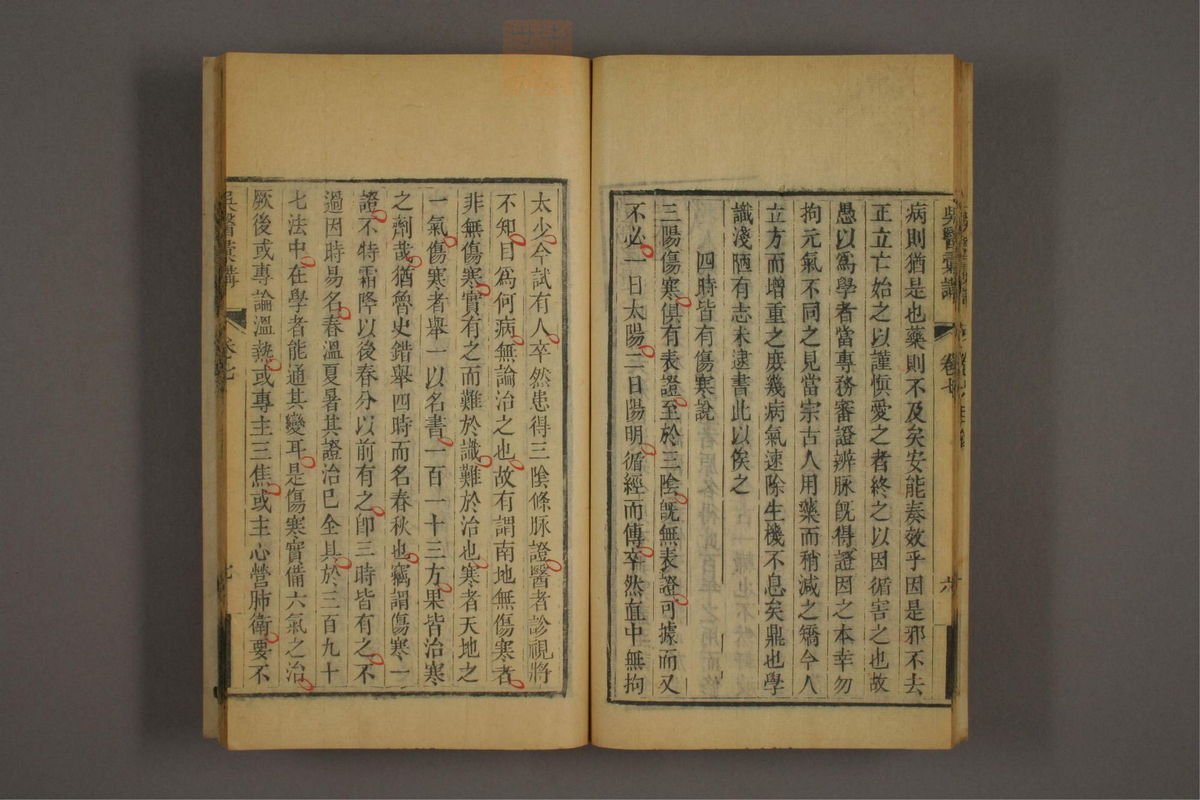 吳醫彙講 卷七 六
病則猶是也藥則不及矣安能奏效乎因是邪不去
正立亡始之以謹慎愛之者終之以因循害之也故
愚以爲學者當專務審證辨脉既得證因之本幸勿
拘元氣不同之見當宗古人用藥而稍減之矯今人
立方而增重之庶幾病氣速除生機不息矣鼎也學
識淺陋有志未逮書此以俟之
四時皆有傷寒說
三陽傷寒俱有表證至於三陰既無表證可據而又
不必一日太陽二日陽明循經而傳卒然直中無拘
太少今試有人卒然患得三陰條脉證醫者診視將
不知目爲何病無論治之也故有謂南地無傷寒者
非無傷寒實有之而難於識難於治也寒者天地之
一氣傷寒者舉一以名書一百一十三方果皆治寒
之劑哉猶魯史錯舉四時而名春秋也竊謂傷寒一
證不特霜降以後春分以前有之卽三時皆有之不
過因時易名春溫夏暑其證治已全具於三百九十
七法中在學者能通其變耳是傷寒實備六氣之治
厥後或專論溫熱或專主三焦或主心營肺衛要不
吳醫彙講 卷七 七